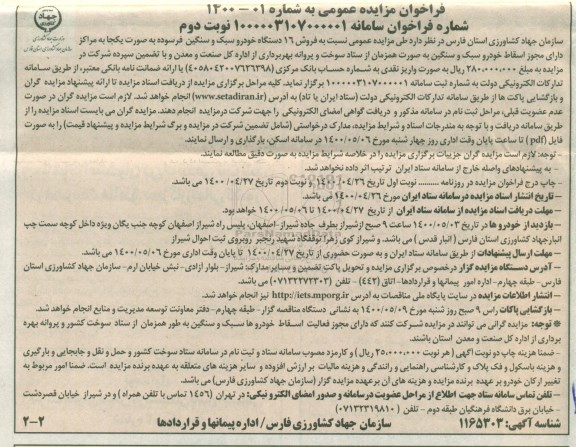 فراخوان مزایده عمومی به شماره ۰۱ - ۱۴۰۰
شماره فراخوان سامانه ۱۰۰۰۰۰۳۱۰۷۰۰۰۰۰۱ نوبت دوم
سازمان جهاد کشاورزی استان فارس در نظر دارد طی مزایده عمومی نسبت به فروش ۱۶ دستگاه خودرو سبک و سنگین فرسوده به صورت یکجا به مراکز
دارای مجوز اسقاط خودرو سبک و سنگین به صورت همزمان از ستاد سوخت و پروانه بهره‌برداری از اداره کل صنعت و معدن و با تضمین سپرده شرکت در
مزایده به مبلغ ۳۸۰,۰۰۰,۰۰۰ ریال به صورت واریز نقدی به شماره حساب بانک مرکزی (۴۰۵۸۰۴۲۰۰۷۶۳۶۳۹۸) یا ارائه ضمانت نامه بانکی معتبر، از طریق سامانه
تدارکات الکترونیکی دولت به شماره ثبت سامانه ۱۰۰۰۰۰۳۱۰۷۰۰۰۰۰۱ برگزار نماید. کلیه مراحل برگزاری مزایده از دریافت اسناد مزایده تا ارائه پیشنهاد مزایده گران
و بازگشایی پاکت ها از طریق سامانه تدارکات الکترونیکی دولت (ستاد ایران یا تاد) به آدرس (www.setadiran.ir) انجام خواهد شد. لازم است مزایده گران در صورت
عدم عضویت قبلی، مراحل ثبت نام در سامانه مذکور و دریافت گواهی امضای الکترونیکی را جهت شرکت در مزایده انجام دهند. مزایده گران می بایست اسناد مزایده را از
طریق سامانه دریافت و با توجه به مندرجات اسناد و شرایط مزایده، مدارک درخواستی (شامل تضمین شرکت در مزایده و برگ شرایط مزایده و پیشنهاد قیمت) را به صورت
فایل (pdf) تا ساعت پایان وقت اداری روز چهار شنبه مورخ ۱۴۰۰/۰۵/۰۶ در سامانه اسکن، بارگذاری و ارسال نمایند.
- توجه: لازم است مزایده گران جزییات برگزاری مزایده را در خلاصه شرایط مزایده به صورت دقیق مطالعه نمایند.
- به پیشنهادهای واصله خارج از سامانه ستاد ایران ترتیب اثر داده نخواهد شد.
- چاپ درج فراخوان مزایده در روزنامه ........... نوبت اول تاریخ ۱۴۰۰/۰۴/۲۶ و نوبت دوم تاریخ ۱۴۰۰/۰۴/۲۷ می باشد.
- تاریخ انتشار اسناد مزایده در سامانه ستاد ایران مورخ ۱۴۰۰/۰۴/۲۶ می باشد.
- مهلت دریافت اسناد مزایده از سامانه ستاد ایران از تاریخ ۱۴۰۰/۰۴/۲۷ تا ۱۴۰۰/۰۵/۰۶ خواهد بود.
- بازدید از خودرو ها در تاریخ ۱۴۰۰/۰۵/۰۳ ساعت ۹ صبح از شیراز بطرف جاده شیراز - اصفهان، پلیس راه شیراز اصفهان کوچه جنب یگان ویژه داخل کوچه سمت چپ
انبار جهاد کشاورزی استان فارس (انبار قدس) می باشد. و شیراز کوی زهرا توقفگاه شهید رنجبر روبروی ثبت احوال شیراز
- مهلت ارسال پیشنهادات از طریق سامانه ستاد ایران و به صورت حضوری از تاریخ ۱۴۰۰/۰۴/۲۷ تا پایان وقت اداری مورخ ۱۴۰۰/۰۵/۰۶ می باشد.
- آدرس دستگاه مزایده گزار در خصوص برگزاری مزایده و تحویل پاکت تضمین و سایر مدارک: شیراز - بلوار آزادی - نبش خیابان ارم - سازمان جهاد کشاورزی استان
فارس - طبقه چهارم - اداره امور پیمانها و قراردادها - اتاق (۴۴۲) - تلفن (۰۷۱۳۲۲۷۲۳۰۳) می باشد.
- انتشار اطلاعات مزایده در سایت پایگاه ملی مناقصات به آدرس http://iets.mporg.ir نیز انجام خواهد شد.
- بازگشایی پاکات راس ۹ صبح روز شنبه مورخ ۱۴۰۰/۰۵/۰۹ به نشانی دستگاه مناقصه گزار - طبقه چهارم - دفتر معاونت توسعه مدیریت و منابع انجام خواهد شد.
توجه: مزایده گرانی می توانند در مزایده شرکت کنند که دارای مجوز فعالیت اسقاط خودرو ها سبک و سنگین به طور همزمان از ستاد سوخت کشور و پروانه بهره
برداری از اداره کل صنعت و معدن استان باشند.
- ضمنا هزینه چاپ دو نوبت آگهی (هر نوبت ۲۵,۰۰۰,۰۰۰ ریال) و کارمزد مصوب سامانه ستاد و ثبت نام در سامانه ستاد سوخت کشور و حمل و نقل و جابجایی و بارگیری
و هزینه باسکول و فک پلاک و کارشناسی راهنمایی و رانندگی و هزینه مالیات بر ارزش افزوده و سایر هزینه های متعلقه به عهده برنده مزایده است. ضمنا امور مربوط به
تغییر ارکان خودرو بر عهده برنده مزایده و هزینه های آن برعهده مزایده گزار (سازمان جهاد کشاورزی فارس) می باشد.
- تلفن تماس سامانه ستاد جهت اطلاع از مراحل عضویت در سامانه و صدور امضای الکترونیکی: در تهران (۱۴۵۶ تماس با تلفن همراه) و در شیراز خیابان قصردشت
- خیابان برق دانشگاه فرهنگیان طبقه دوم - تلفن (۰۷۱۳۲۳۱۹۸۱۰)
شناسه آگهی: ۱۱۶۵۳۰۳
سازمان جهاد کشاورزی فارس / اداره پیمانها و قراردادها
۲-۲